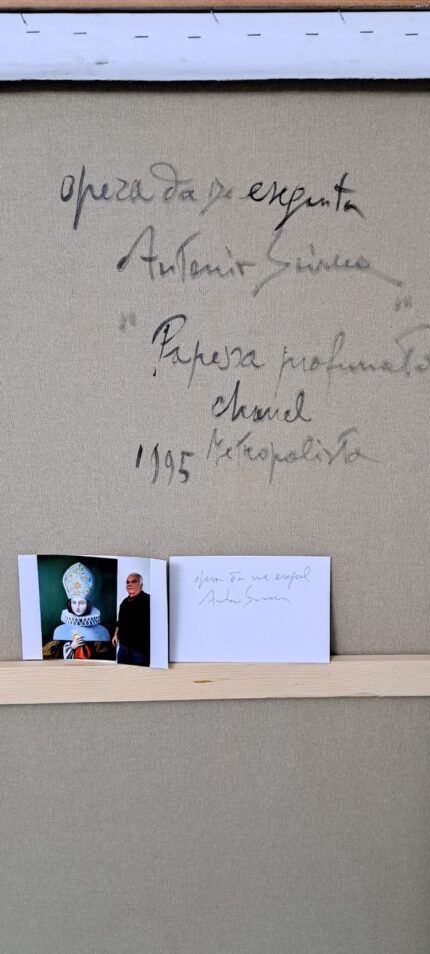 opera da me eseguita
Antonio
"Papessa profumata
chanel
1995 Metropolista
opera da me
Antonio